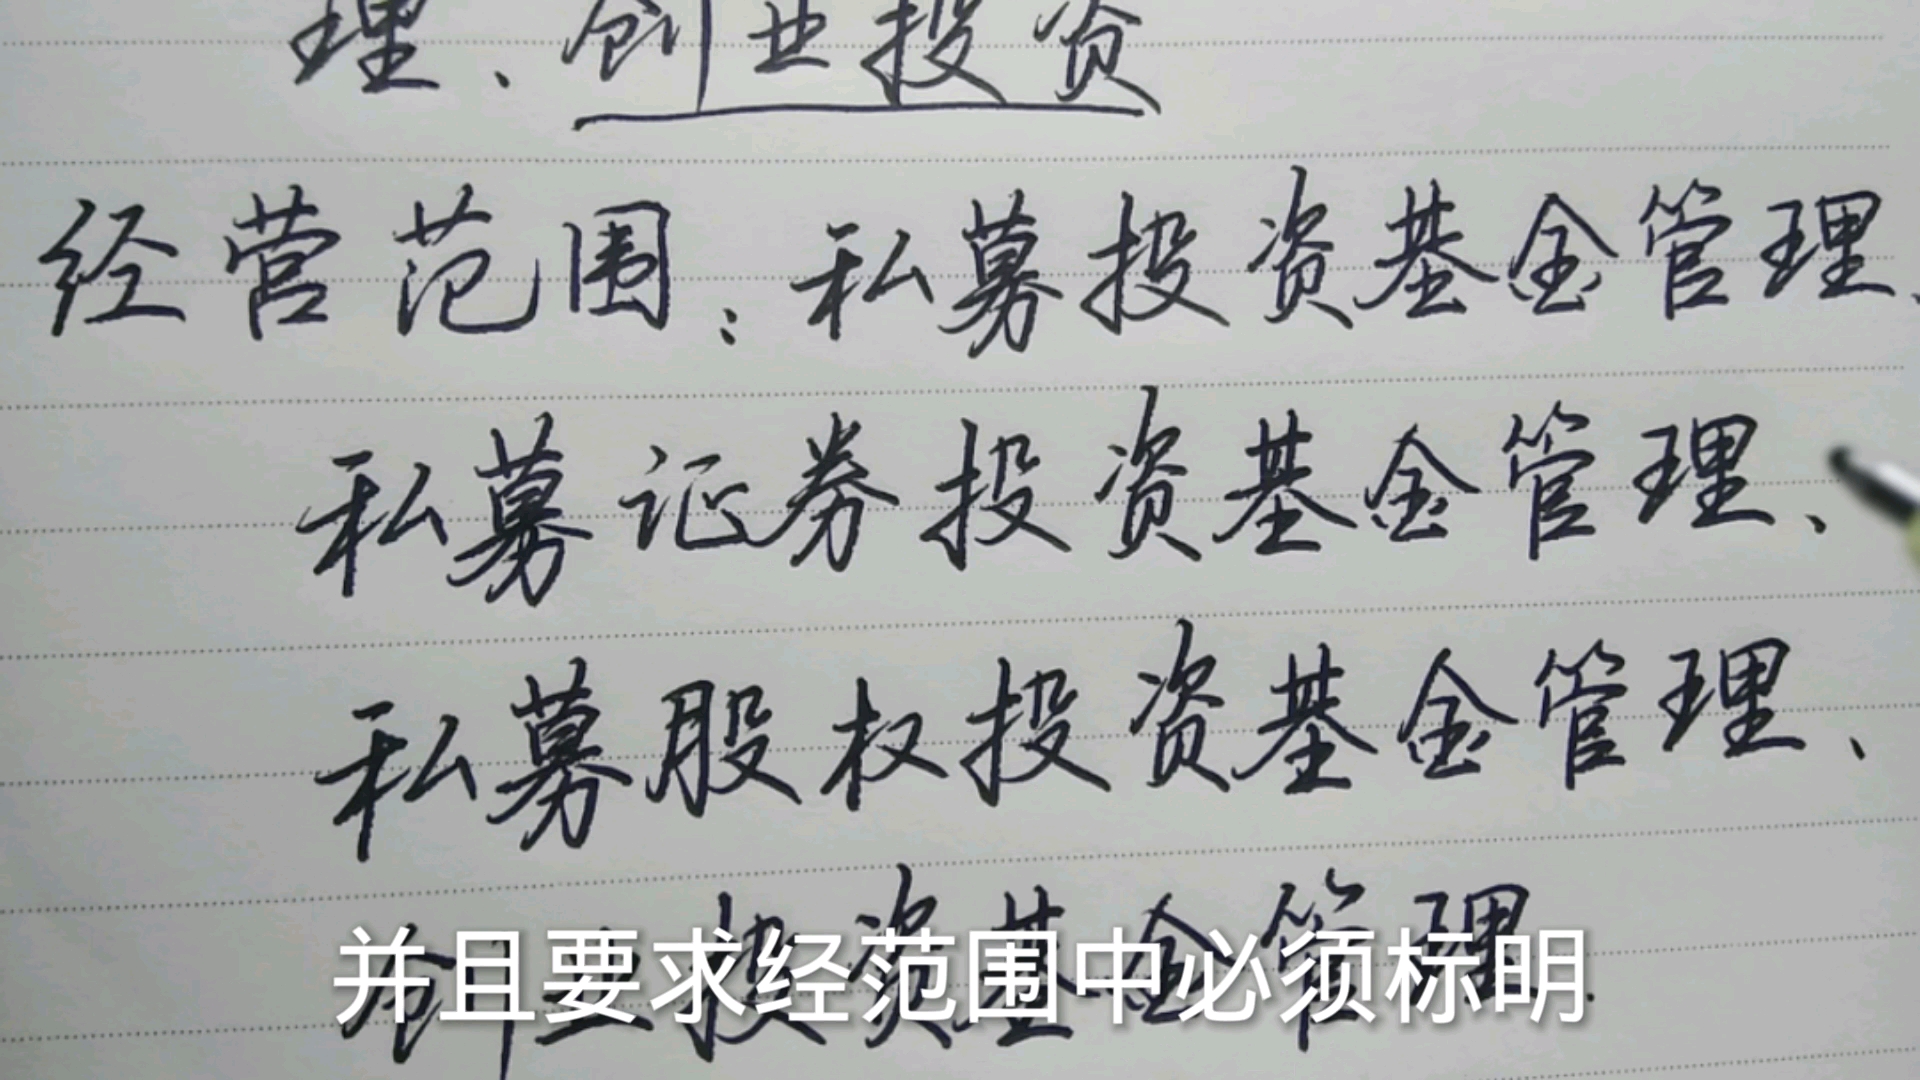 理、创业投资
经营范围：私募投资基金管理、
私募证券投资基金管理、
私募股权投资基金管理、
创业投资基金管理.
并且要求经范围中必须标明